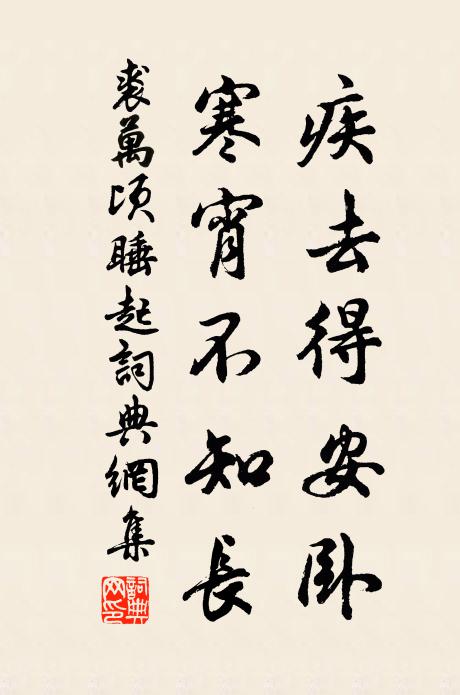 疾去得安卧
寒宵不知長
裘萬頃睡起詞典網集
詞典网印